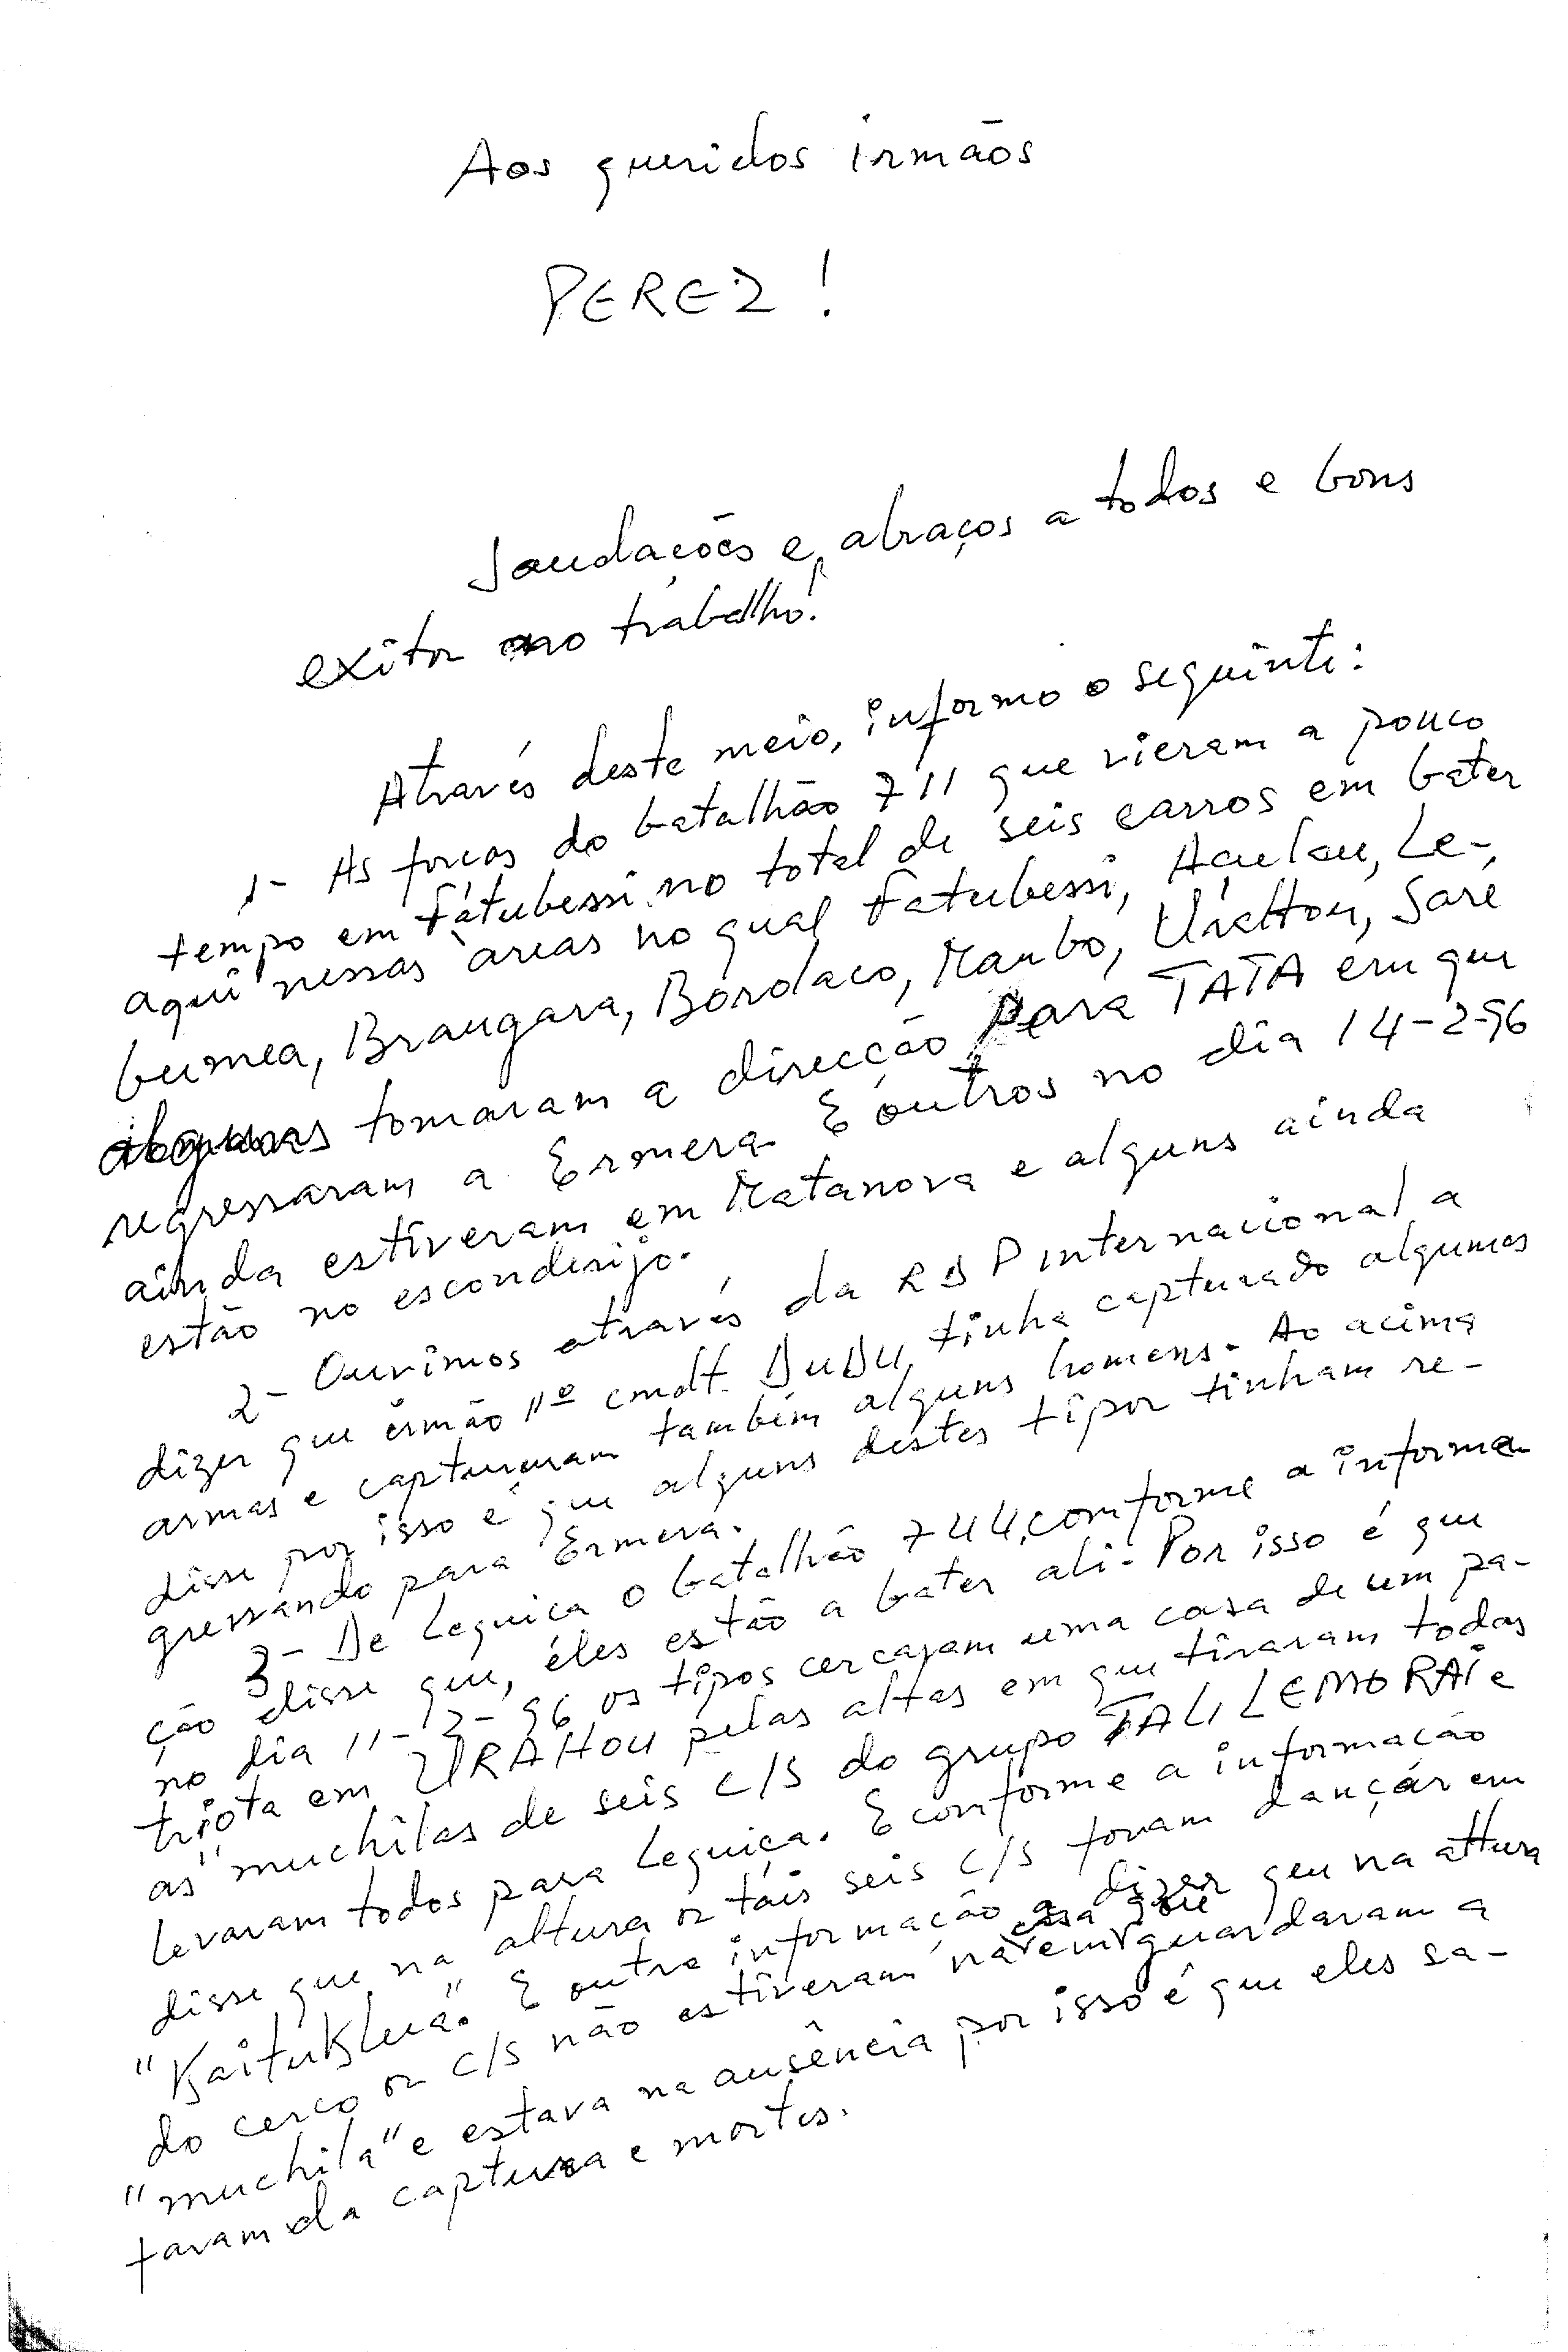 Aos queridos irmãos
PEREZ!
Saudações e abraços a todos e bons
exitos no trabalho!
Através deste meio, informo o seguinte:
1- As forcas do batalhão 711 que vieram a pouco
tempo em Fatubessi no total de seis carros em bater
aqui nessas áreas no qual Fatubessi, Açulau, Le-
bumea, Braugara, Bordolaco, Manbo, Urahou, Saré
alguns tomaram a direcção para TATA em que
regressaram a Ermera E outros no dia 14-2-96
ainda estiveram em Matanova e alguns ainda
estão no esconderijo.
2- Ouvimos através da RDP internacional a
dizer que irmão 1º cmdt. DUDU, tinha capturado algumas
armas e capturaram também alguns homens. Ao acima
disse por isso é que alguns destes tipos tinham re-
gressando para Ermera.
3- De Lequiça o batalhão 744, comforme a informa
ção disse que, éles estão a bater ali. Por isso é que
no dia 11-2-96 os tipos cercaram uma casa de um pa-
triota em URAHOU pelas altas em que tiraram todas
as "muchilas de seis c/s do grupo TALI LEMORAI e
levaram todos para Lequiça. E comforme a informação
disse que na altura os tais seis c/s foram dançar em
"Kaitukluá". E outra informação a dizer que na altura
do cerco os c/s não estiveram na casa que guardaram a
"muchila" e estava na ausência por isso é que eles sa-
faram da captura e mortes.